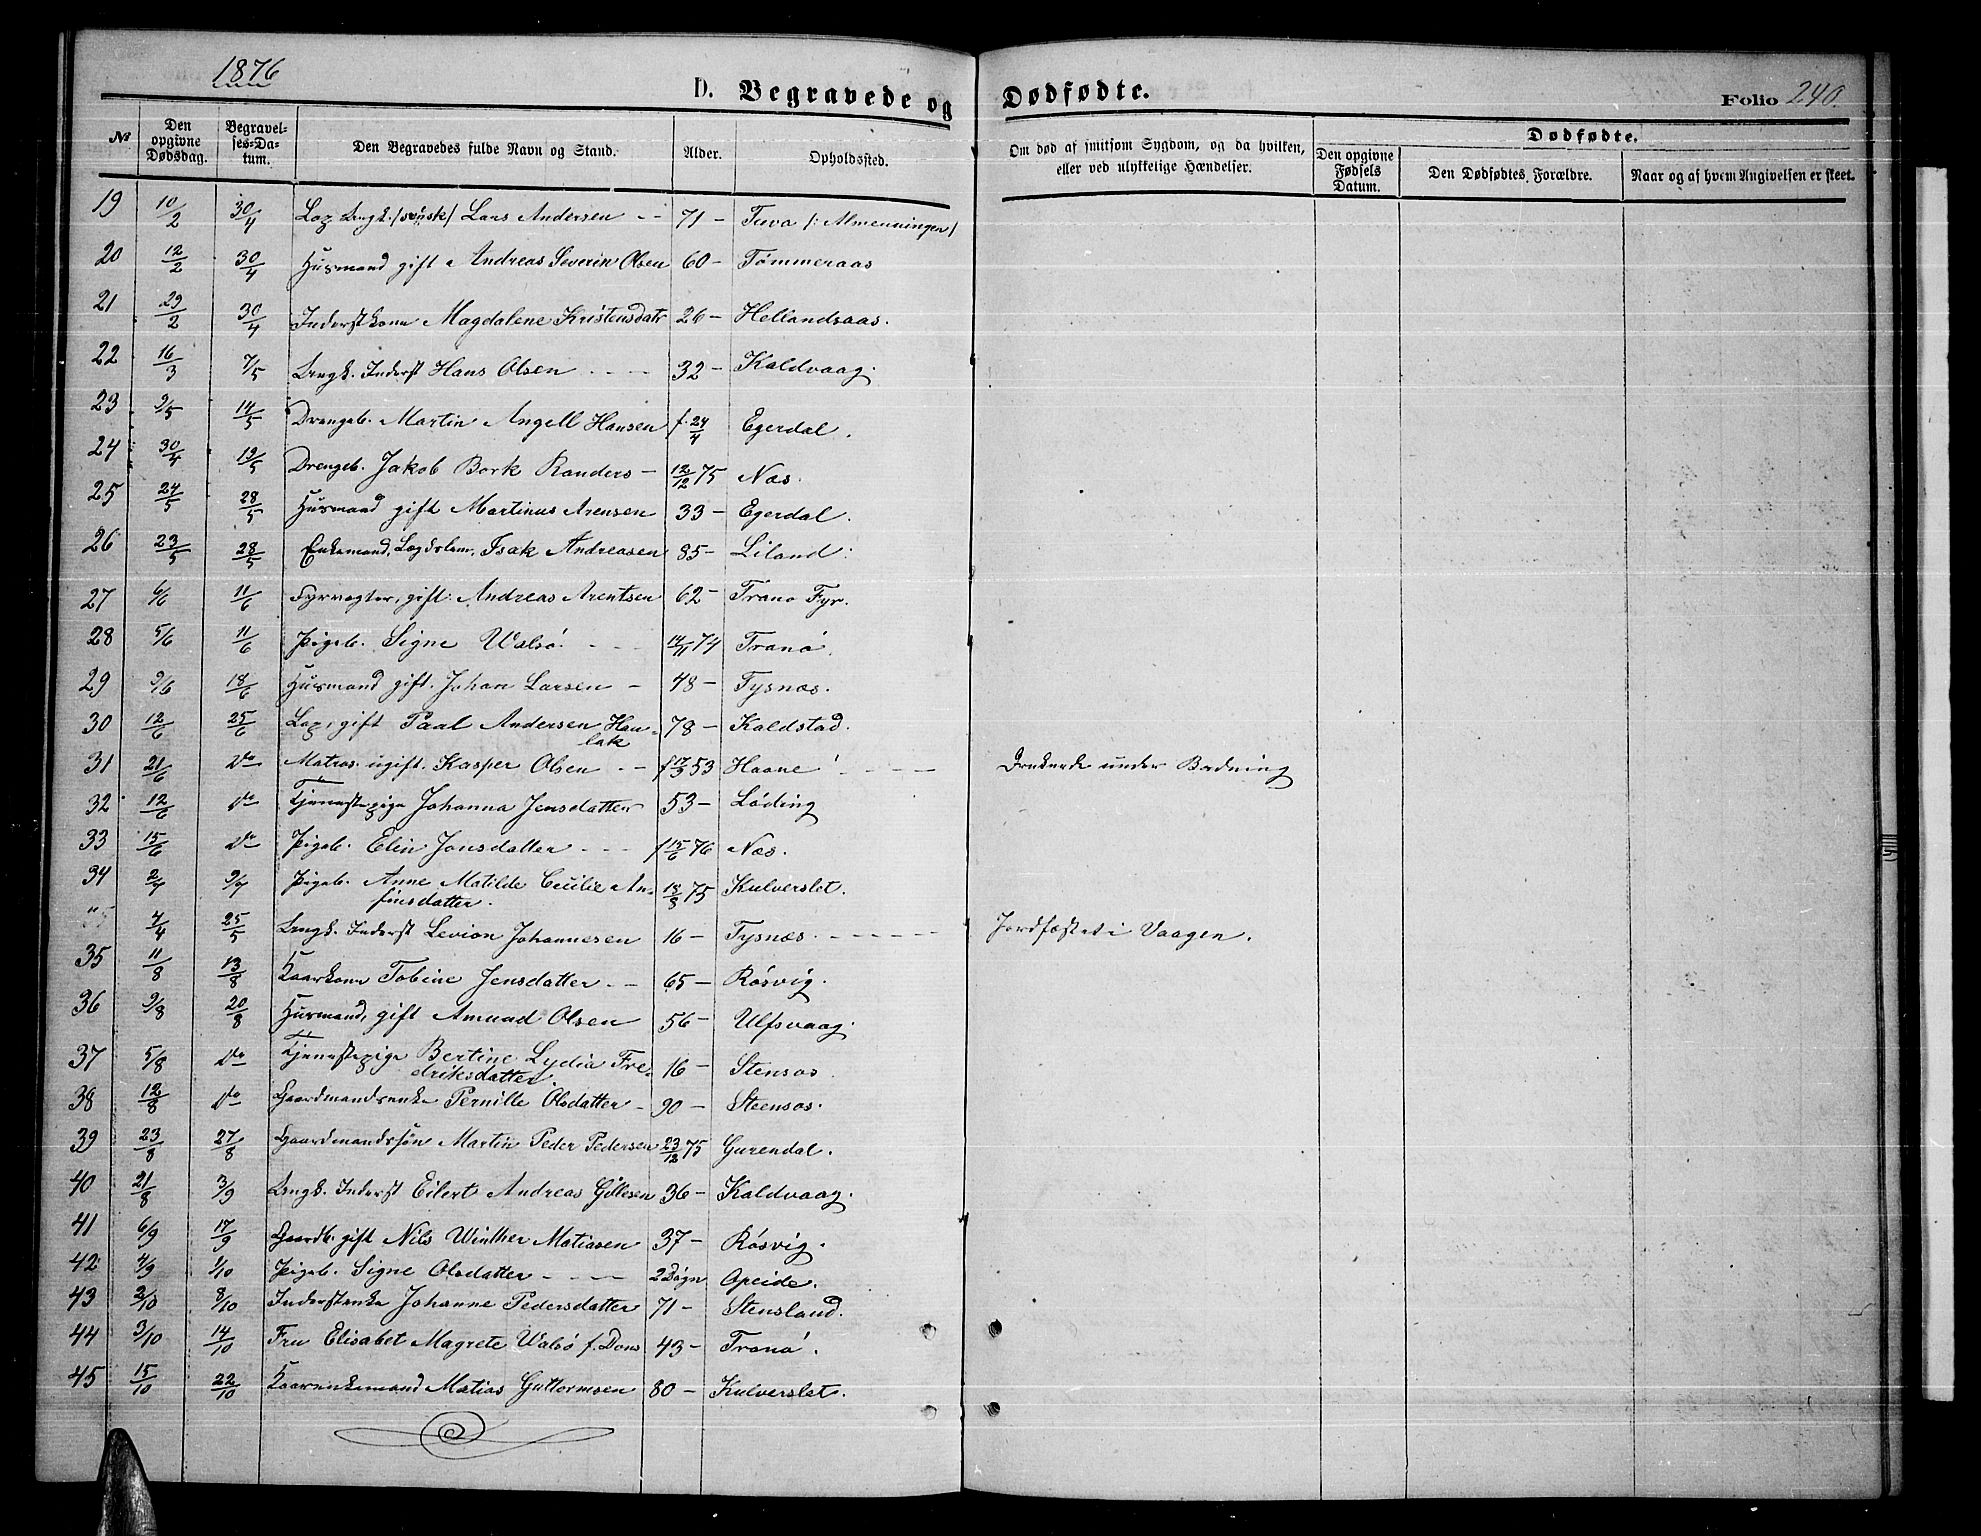 1876
D. Begravede og Dødfødte.
Folio 240.
No.
Den opgivne Dødsdag.
Begravelses-Datum.
Den Begravedes fulde Navn og Stand.
Alder.
Opholdssted.
Om død af smitsom Sygdom, og da hvilken, eller ved ulykkelige Hændelser.
Dødfødte.
Den opgivne Fødsels Datum.
Den Dødfødtes Forældre.
Naar og af hvem Angivelsen er skeet.
19 10/2 30/4 Lap Ungk. (svensk) Lars Andersen 71 - Tuva /: Almenningen /
20 12/2 30/4 Husmand gift Andreas Severin Olsen 60 - Tømmeraas
21 29/2 30/4 Inderstkone Magdalene Kristensdatr 26 - Hellandsaas.
22 16/3 7/5 Ungk. Inderst Hans Olsen 32 - Kaldvaag.
23 9/5 14/5 Drengeb. Martin Angell Hansen f. 24/4 Egerdal.
24 30/4 19/5 Drengeb. Jakob Bork Randers - 12/12 75 Næs.
25 24/5 28/5 Husmand gift Martinus Arensen 33 - Egerdal.
26 23/5 28/5 Enkemand, Lægdslem, Isak Andreasen 85 - Liland.
27 6/6 11/6 Fyrvogter, gift. Andreas Arentsen 62 - Tranø Fyr.
28 5/6 11/6 Pigeb. Signe Walsø. 14/11 74 Tranø.
29 9/6 18/6 Husmand gift. Johan Larsen - 48 - Tysnæs.
30 12/6 25/6 Lap, gift Paal Andersen Haulak 78 - Kaldstad.
31 21/6 Do Matros ugift. Kasper Olsen f 17/3 53 Haane Druknede under Badning
32 12/6 Do Tjenestepige Johanna Jensdatter 53 - Løding
33 15/6 Do Pigeb. Elin Jonsdatter f 15/6 76 Næs.
34 2/7 9/7 Pigeb. Anne Matilde Cecilie Anfinsdatter. 18/8 75 Kulverslet.
4/4 25/5 Ungk. Inderst Levion Johannesen 16 - Tysnæs. Jordfæstet i Vaagen.
35 11/8 13/8 Kaarkone Tobine Jensdatter 65 - Røsvig.
36 9/8 20/8 Husmand, gift Amund Olsen 56 - Ulfsvaag.
37 5/8 Do Tjenestepige Bertine Lydia Fredriksdatter. 16 - Stensøs
38 12/8 Do Gaardmandsenke Pernille Olsdatter - 90 - Steensøs.
39 23/8 27/8 Gaardmandssøn Martin Peder Pedersen 23/12 75 Gurendal.
40 21/8 3/9 Ungk. Inderst Eilert Andreas Gillesen 36 - Kaldvaag.
41 6/9 17/9 Gaardb. gift Nils Winther Matiasen 37 - Røsvig.
42 4/9 1/10 Pigeb. Signe Olsdatter 2 Døgn Opeide.
43 2/10 8/10 Inderstenke Johanne Pedersdatter 71 - Stensland.
44 3/10 14/10 Fru Elisabet Magrete Walsø f. Dons 43 - Tranø.
45 15/10 22/10 Kaarenkemand Matias Guttormsen 80 - Kulverslet.